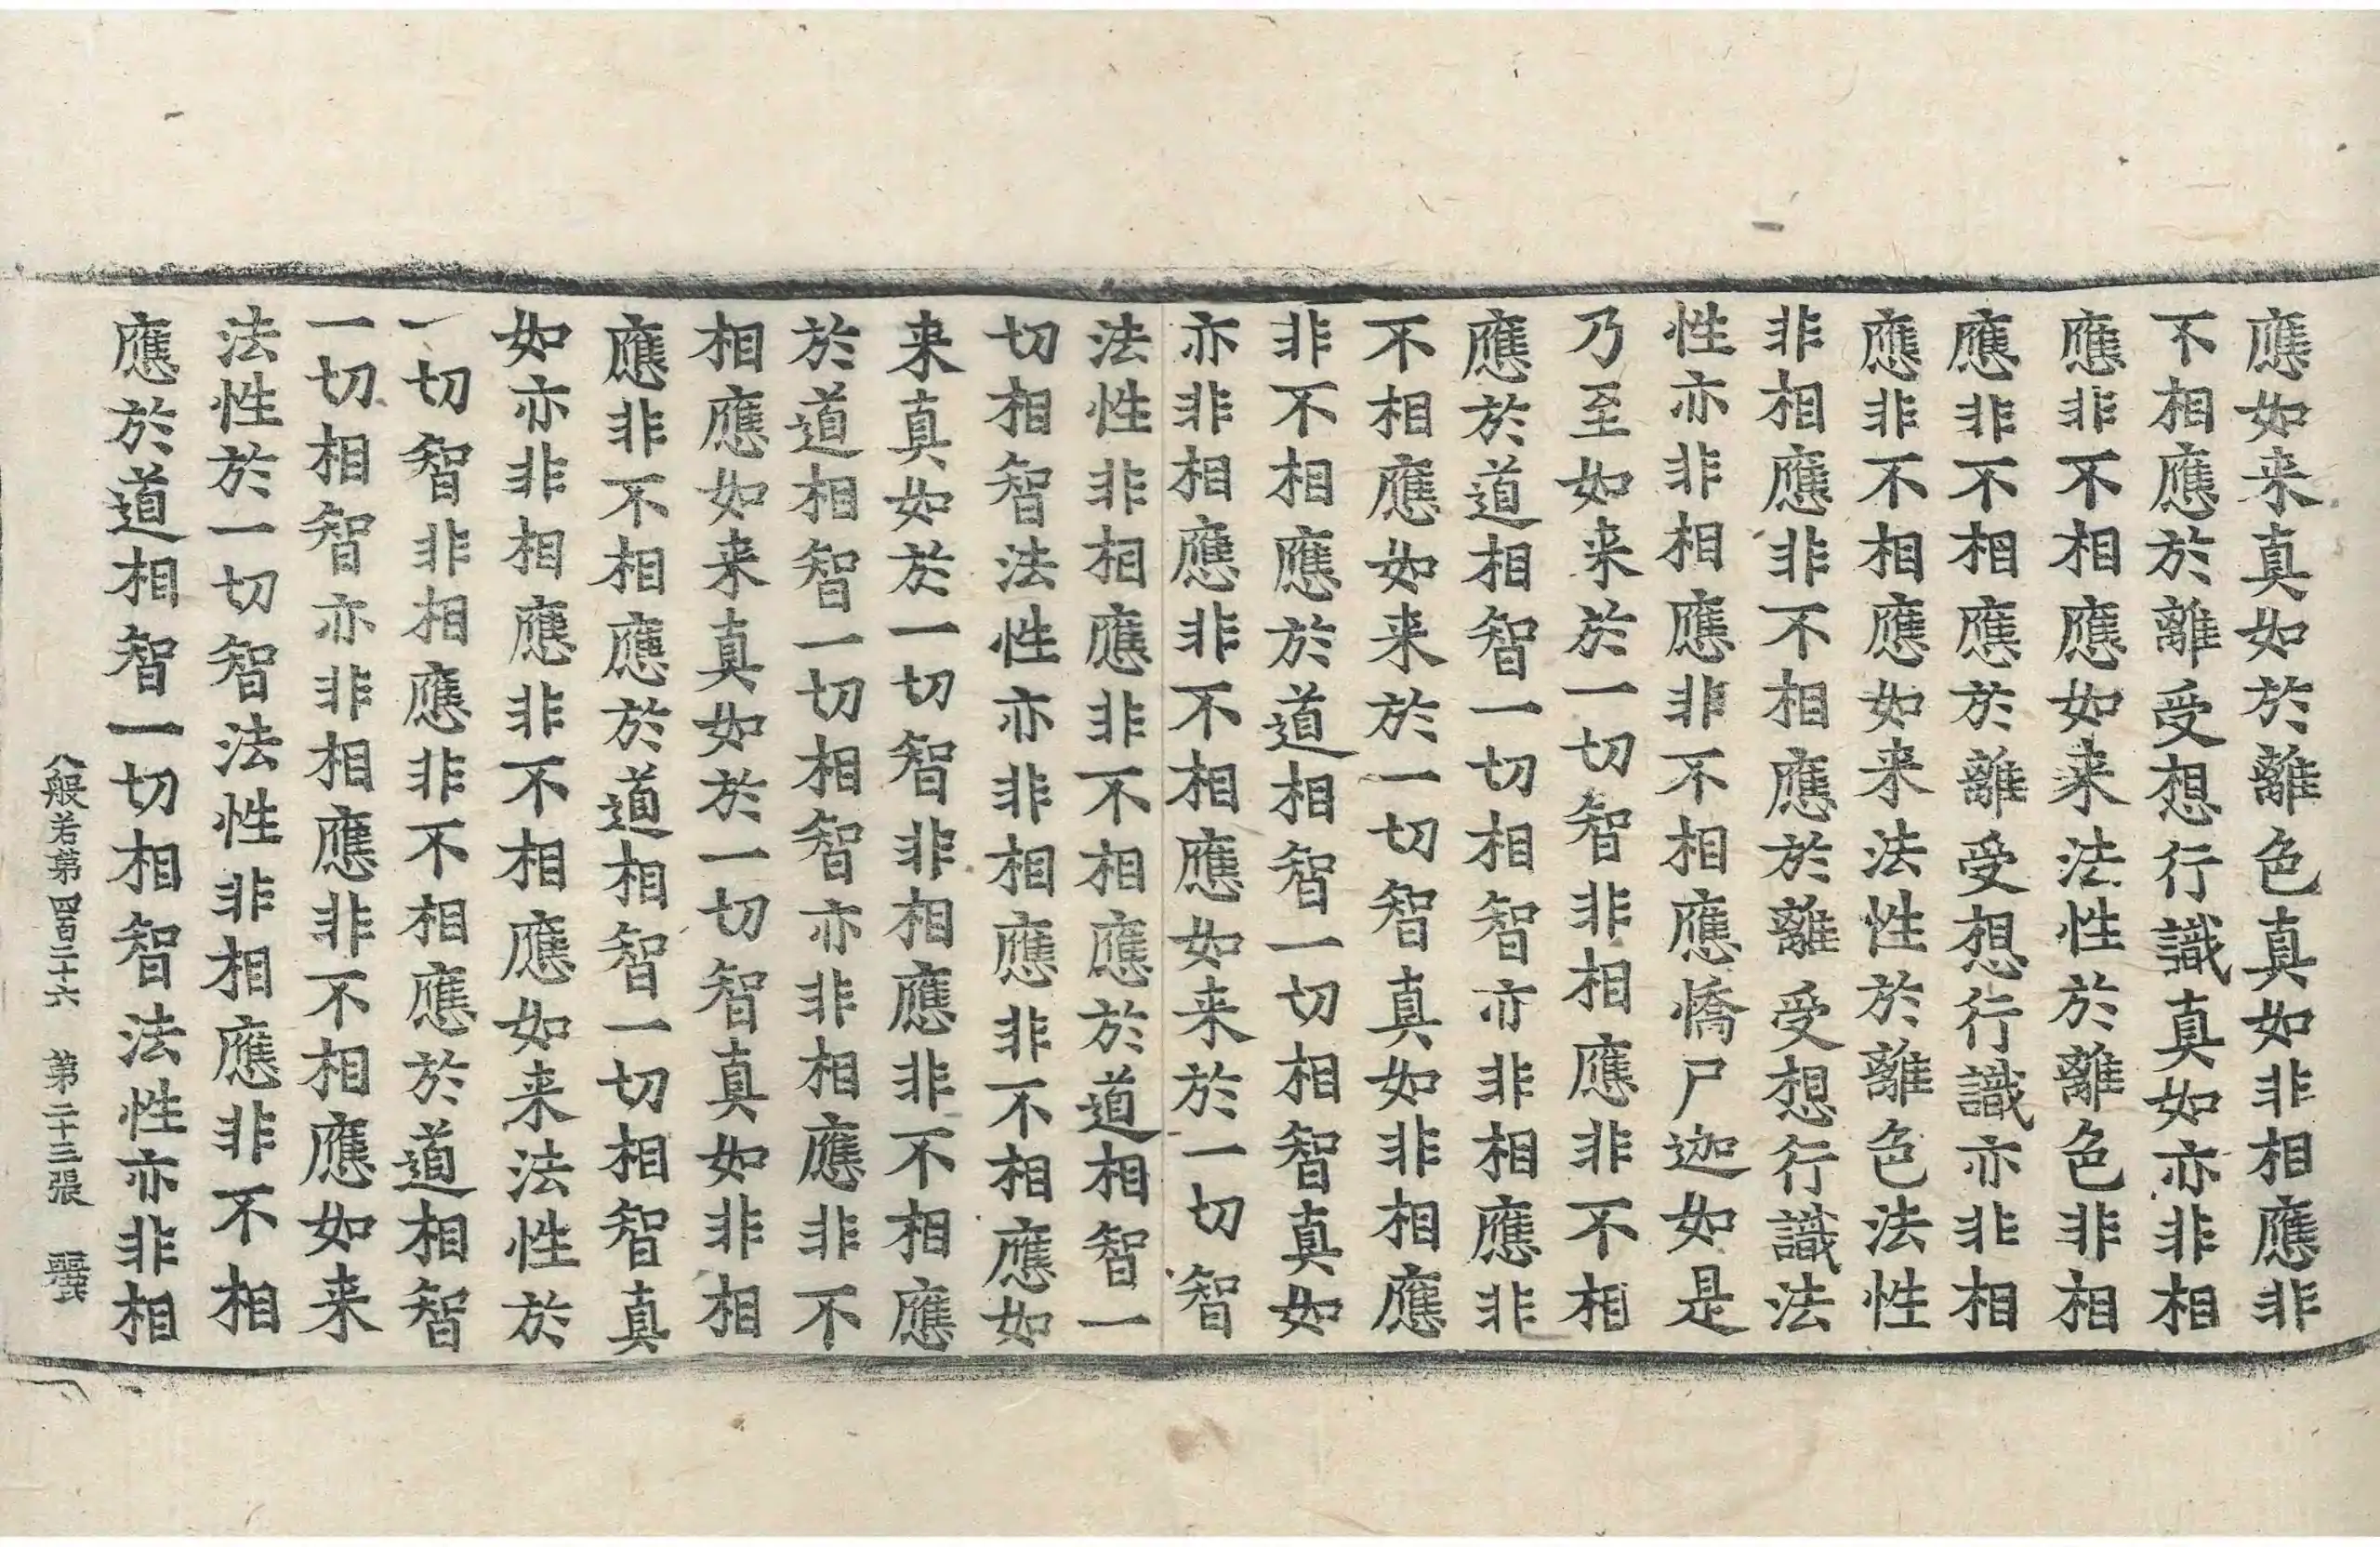 應如来真如於離色真如非相應非
不相應於離受想行識真如亦非相
應非不相應如来法性於離色非相
應非不相應於離受想行識亦非相
應非不相應如来法性於離色法性
非相應非不相應於離受想行識法
性亦非相應非不相應憍尸迦如是
乃至如来於一切智非相應非不相
應於道相智一切相智亦非相應非
不相應如来於一切智真如非相應
非不相應於道相智一切相智真如
亦非相應非不相應如来於一切智
法性非相應非不相應於道相智一
切相智法性亦非相應非不相應如
来真如於一切智非相應非不相應
於道相智一切相智亦非相應非不
相應如来真如於一切智真如非相
應非不相應於道相智一切相智真
如亦非相應非不相應如来法性於
一切智非相應非不相應於道相智
一切相智亦非相應非不相應如来
法性於一切智法性非相應非不相
應於道相智一切相智法性亦非相
般若第四百二十六 第二十三張